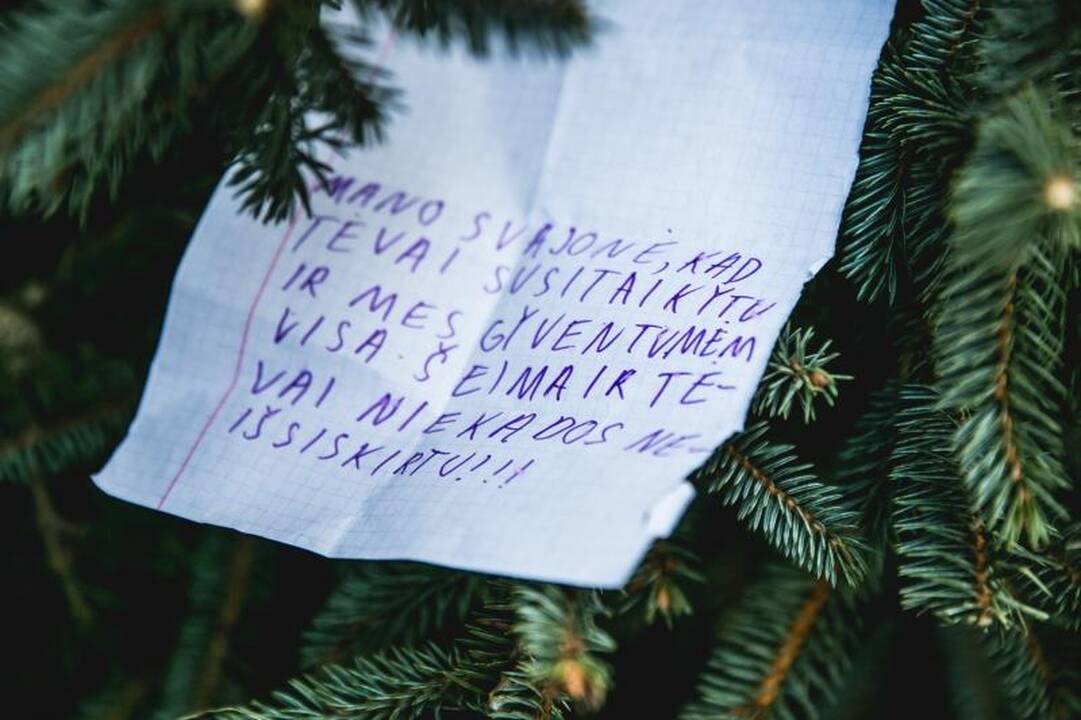 MANO SVAJONĖ, KAD
TĖVAI SUSITAIKYTŲ
IR MES GYVENTUMĖM
VISA ŠEIMA IR TĖ-
VAI NIEKADOS NE-
IŠSISKIRTU!!!